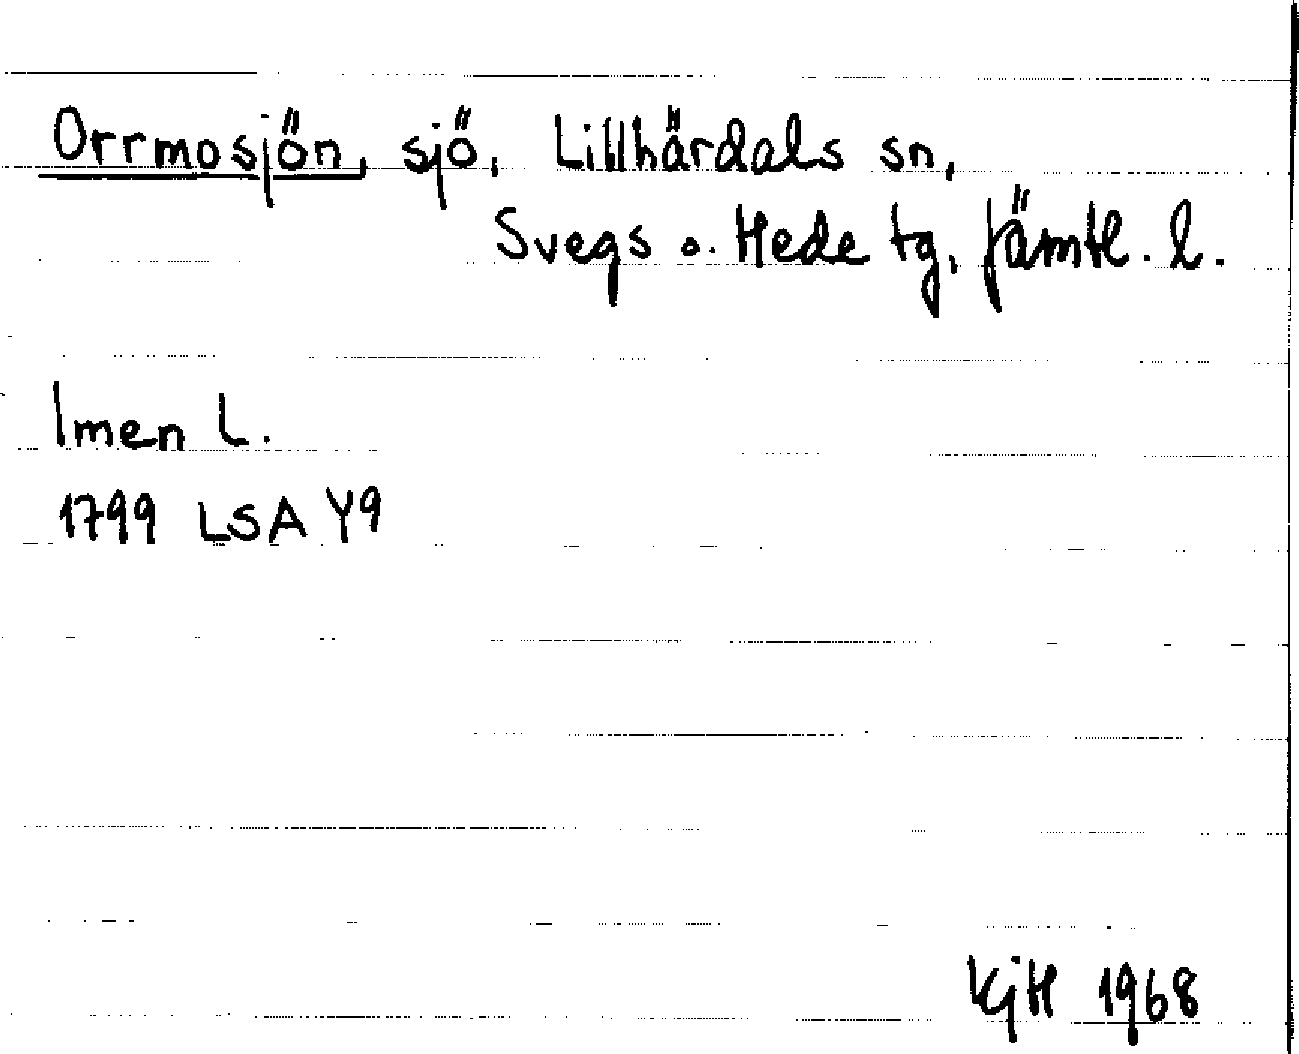 Orrmosjön, sjö, Lillhärdals sn,
Svegs o. Hede tg, Jämtl. l.
Imen L.
1799 LSA Y9
KjH 1968